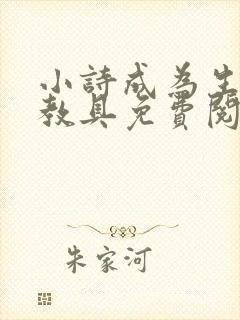 小詩成為生
教具免費閱
朱家河